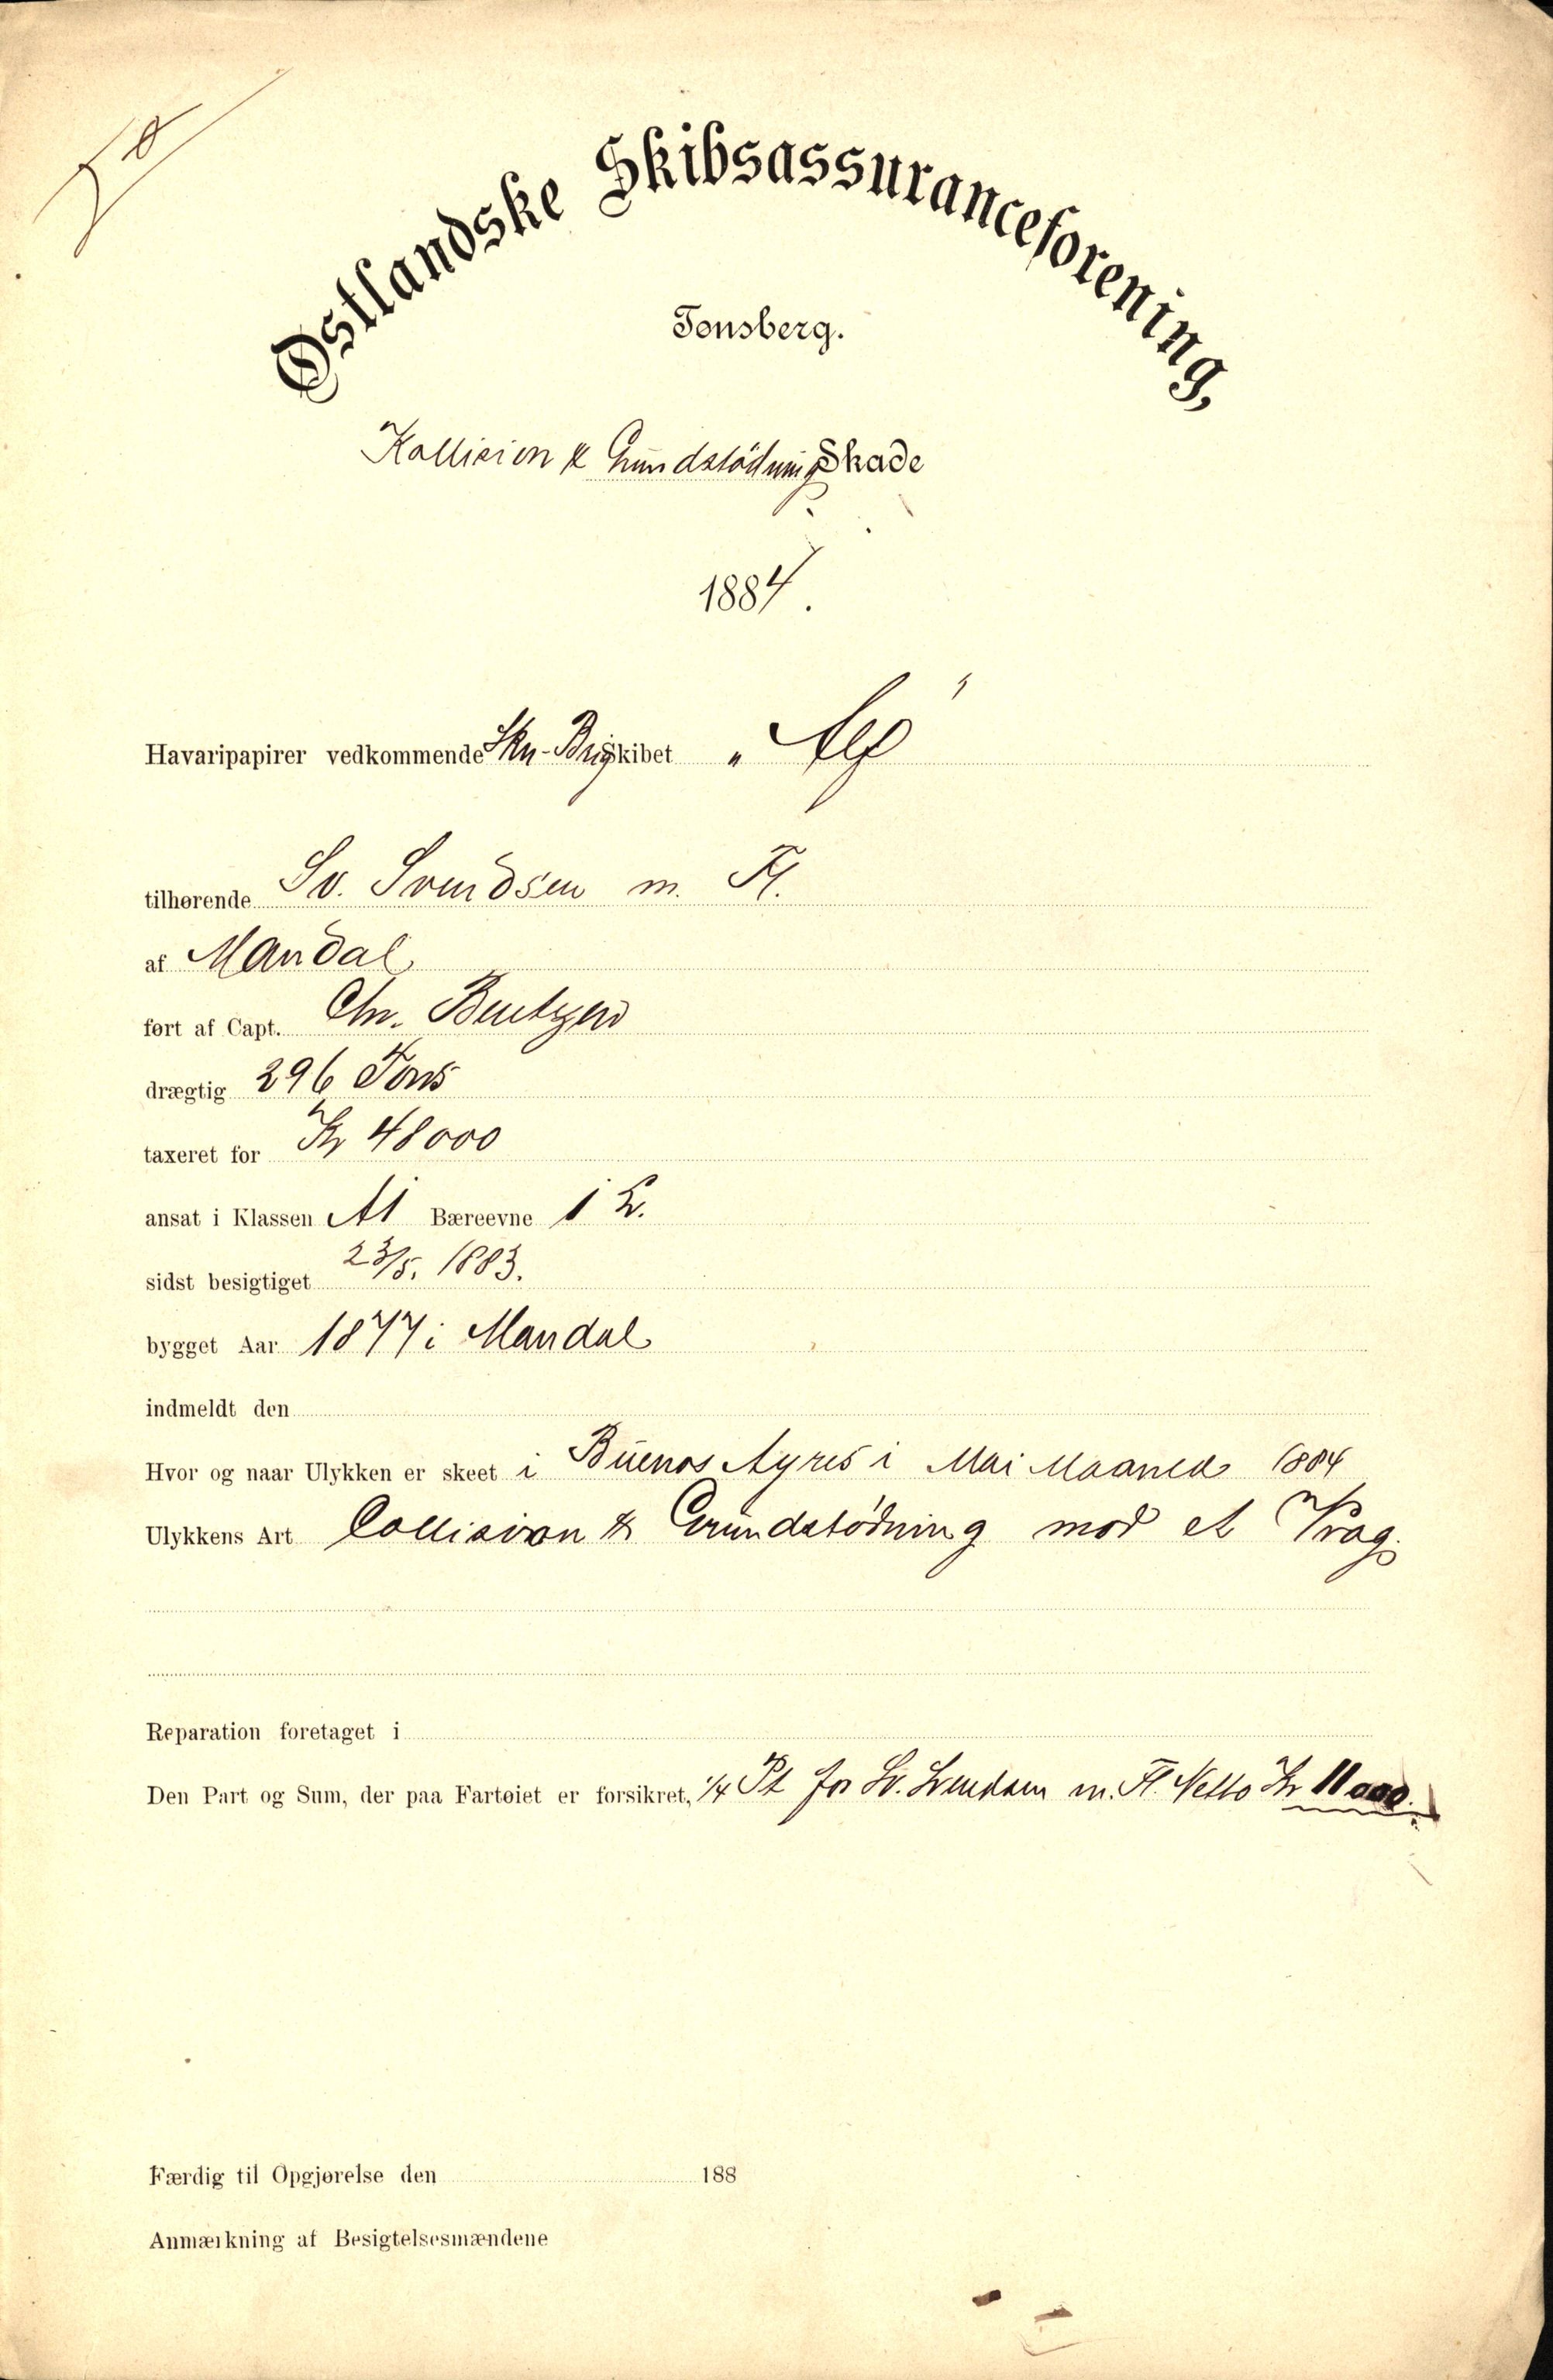 Østlandske Skibsassuranceforening,
Tønsberg.
Kollision & Grundstödning Skade
1884.
Havaripapirer vedkommende Skn-Brigskibet „Alf"
tilhørende Sv. Svendsen m. Fl.
af Mandal
ført af Capt. Chr. Bentzen
drægtig 296 Tons
taxeret for Kr 48000
ansat i Klassen A1 Bæreevne 1
sidst besigtiget 23/5. 1883.
bygget Aar 1877 i Mandal
indmeldt den
Hvor og naar Ulykken er skeet i Buenos Ayres i Mai Maaned 1884
Ulykkens Art Collision & Grundstödning mod et Vrag.
Reparation foretaget i
Den Part og Sum, der paa Fartøiet er forsikret, 1/4 Pt for Sv. Svendsen m. Fl. Netto Kr 11000.
Færdig til Opgjørelse den 188
Anmærkning af Besigtelsesmændene